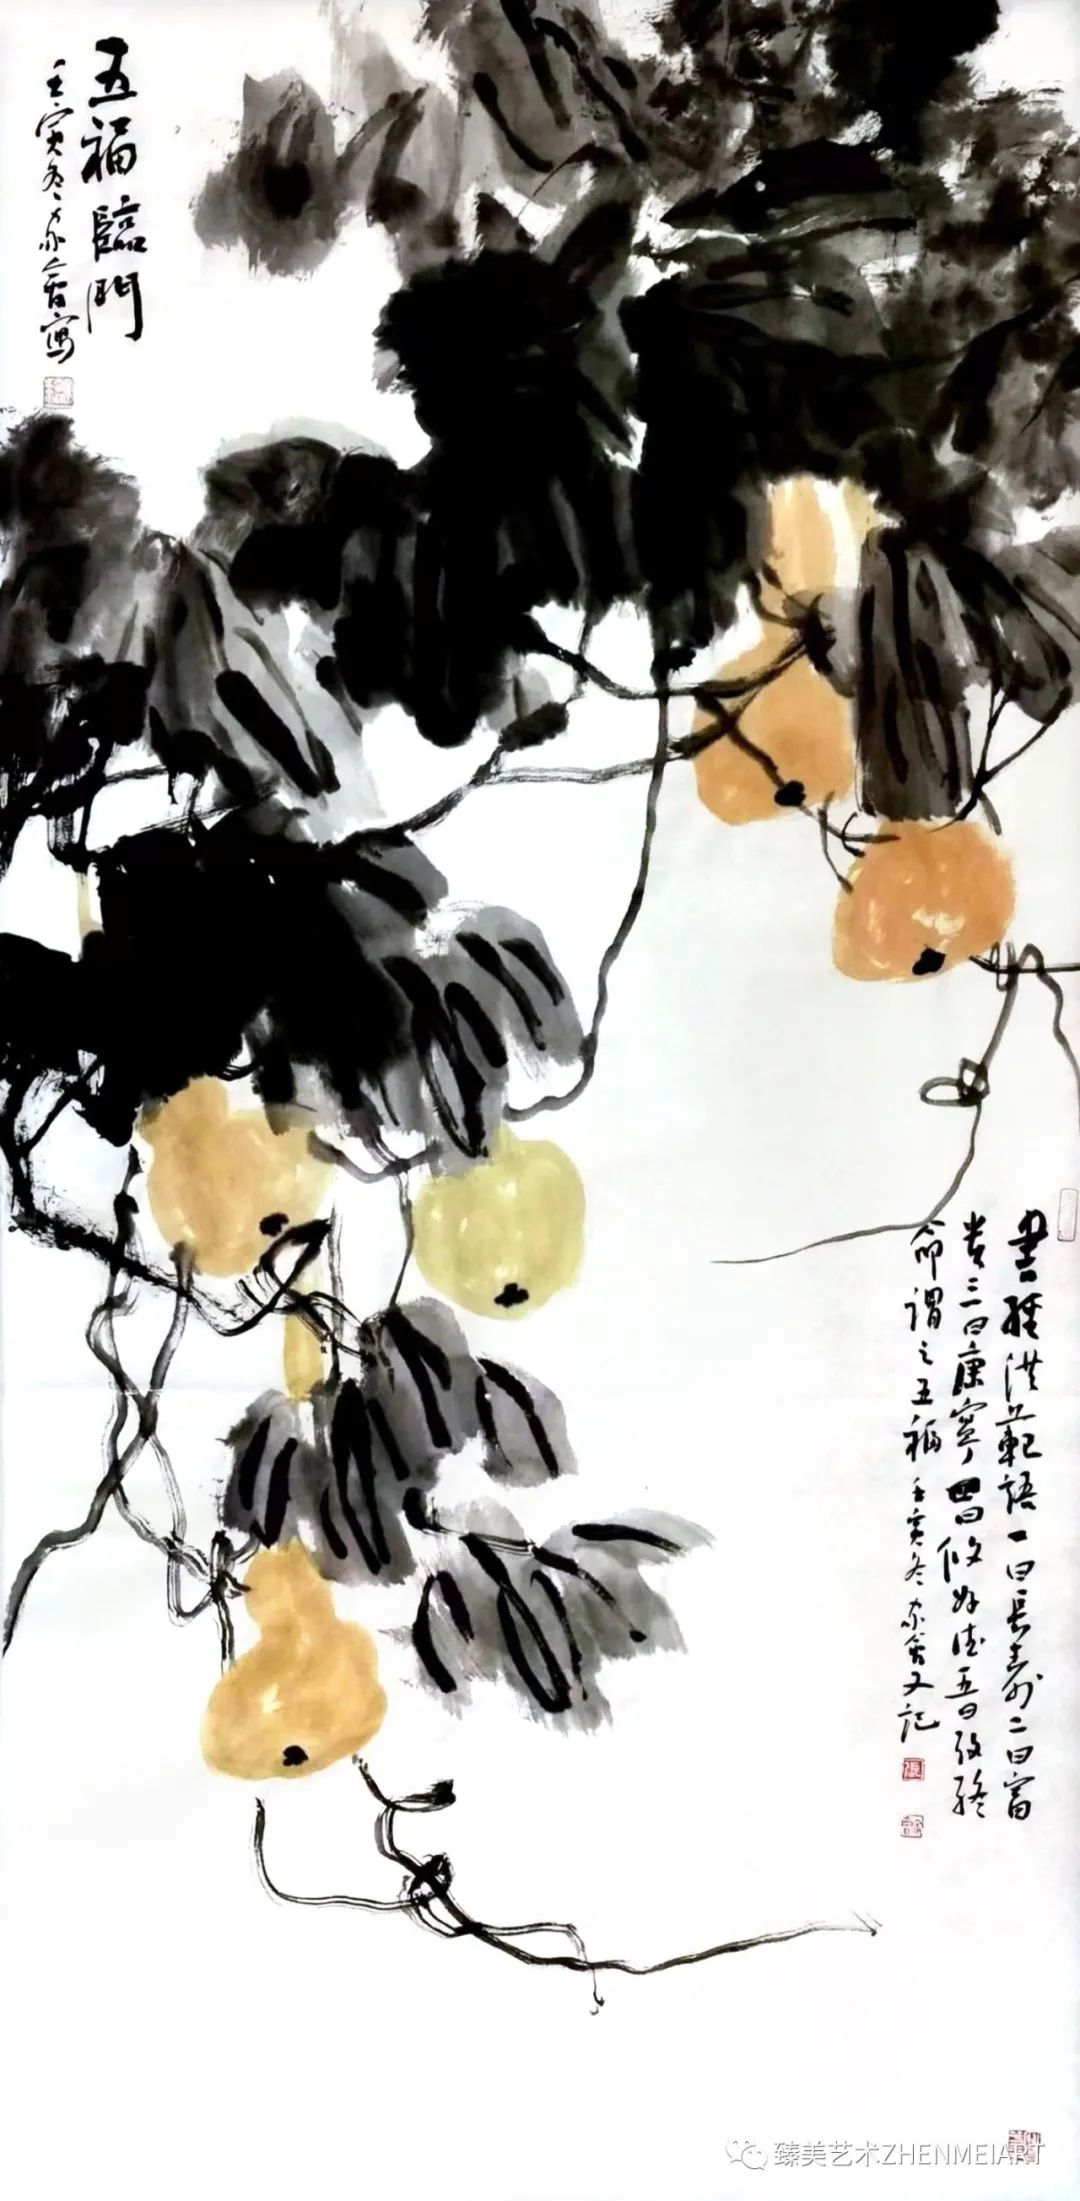 五福臨門
壬寅冬家奮寫
書經洪範語一曰長壽二曰富
貴三曰康寧四曰修好德五曰攷終
命謂之五福壬寅冬家奮又記
臻美艺术ZHENMEIART